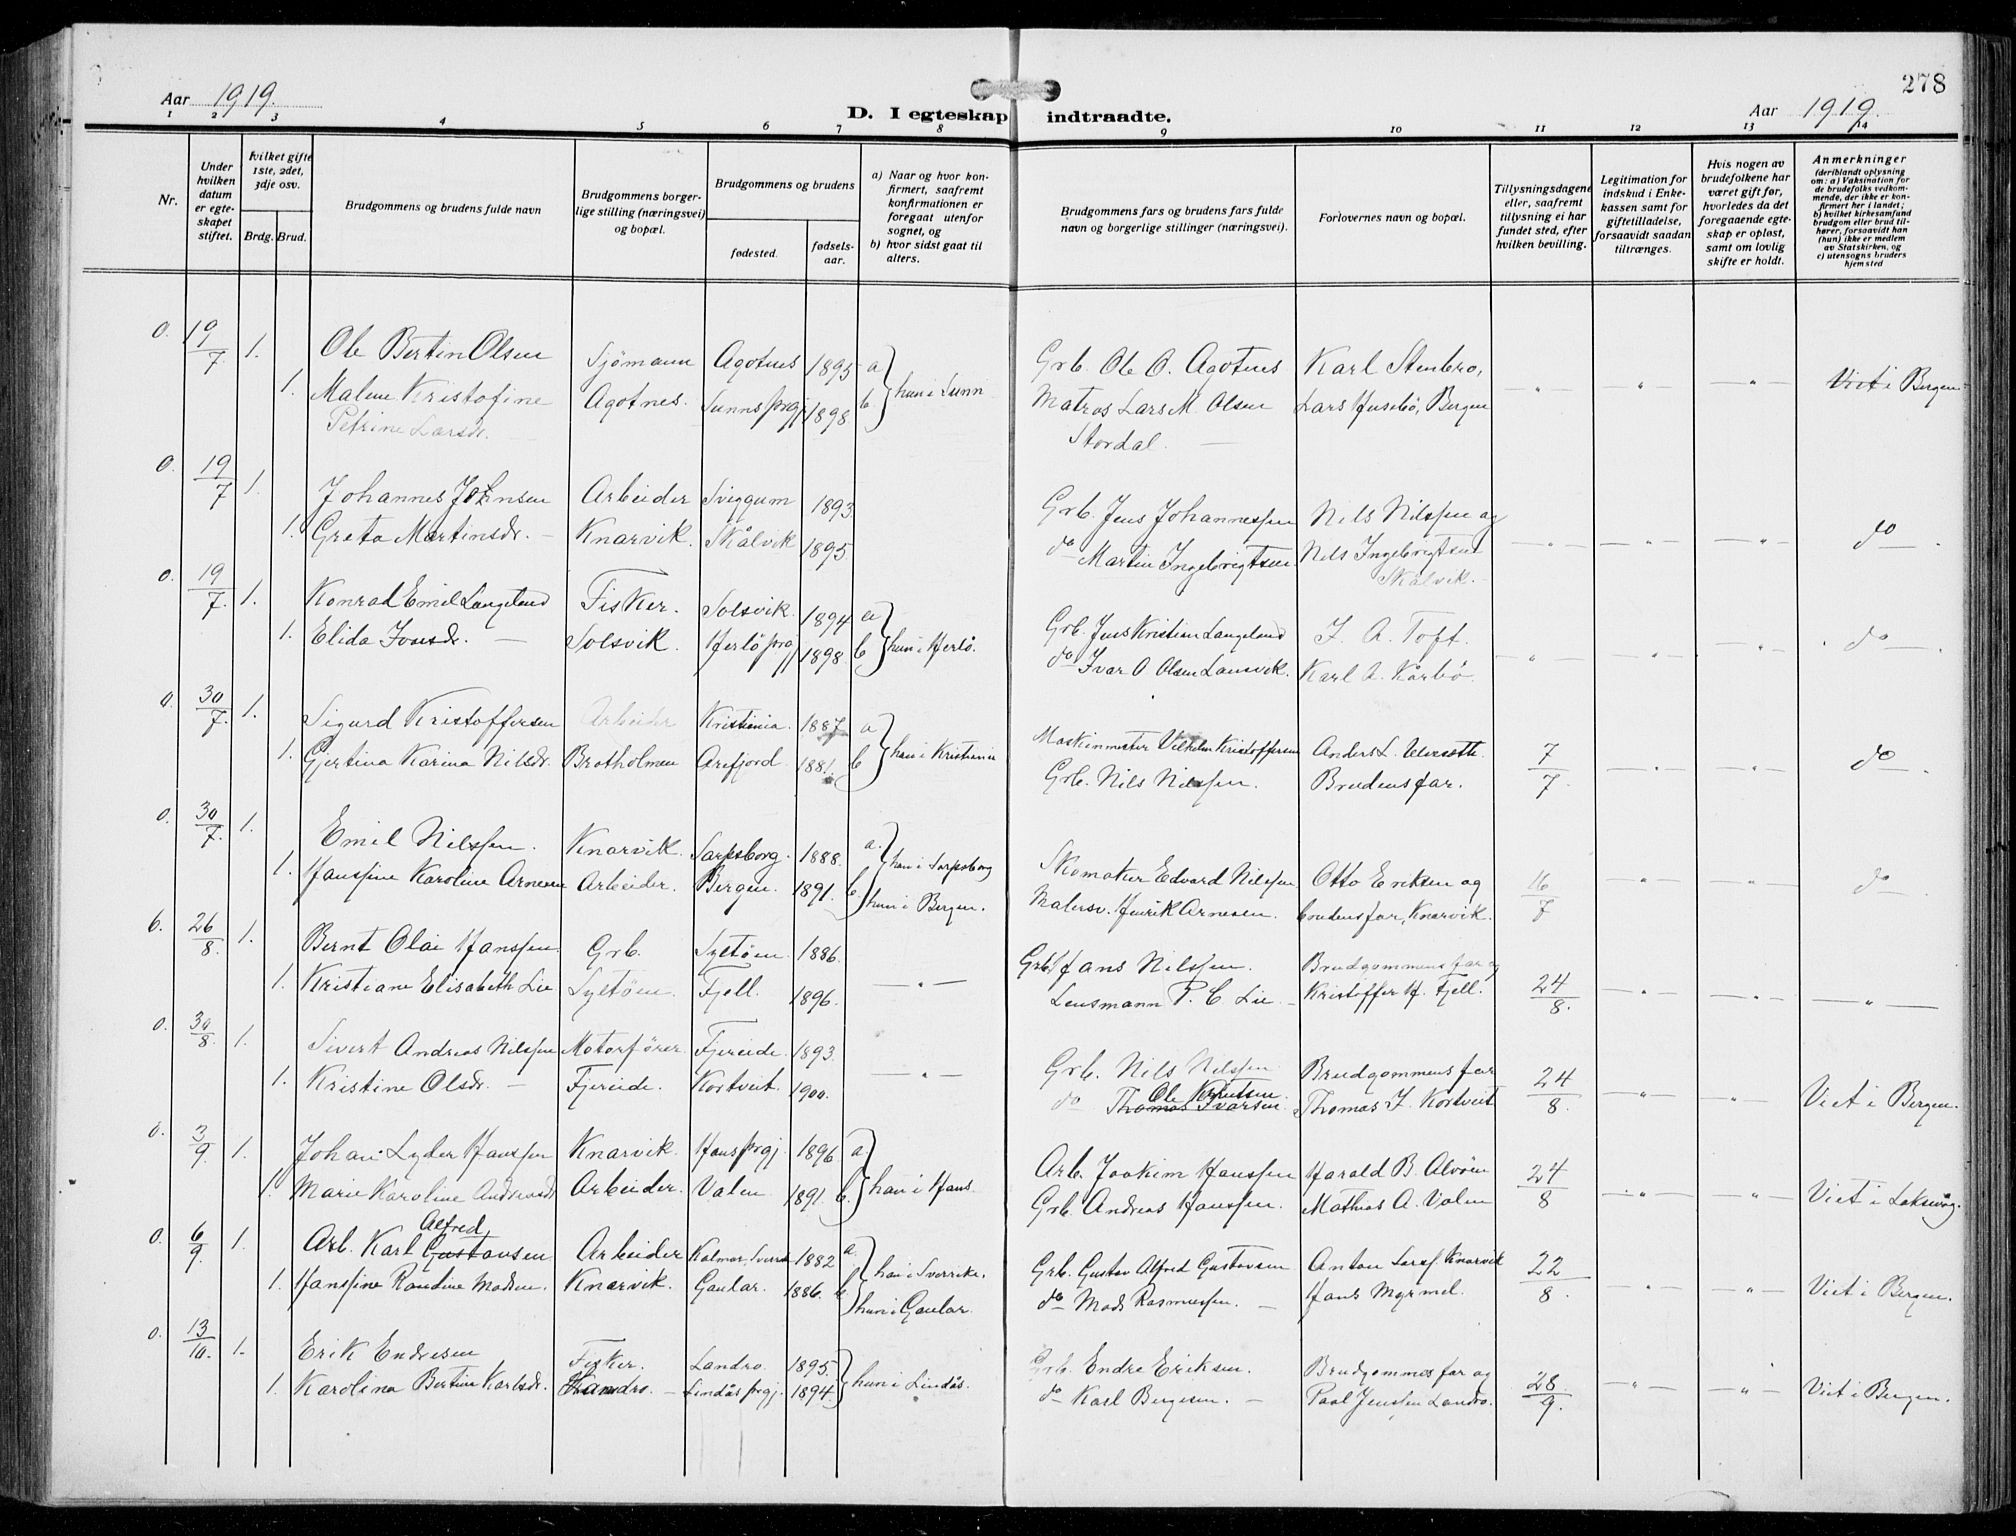 278
Aar 1919.
Aar 1919.
D. I egteskap indtraadte.
1 2 3 4 5 6 7 8 9 10 11 12 13 14
Nr.
Under hvilken datum er egteskapet stiftet.
hvilket gifte 1ste, 2det, 3dje osv.
Brdg. Brud.
Brudgommens og brudens fulde navn
Brudgommens borgerlige stilling (næringsvei) og bopæl.
Brudgommens og brudens
fødested. fødselsaar.
a) Naar og hvor konfirmert, saafremt konfirmationen er foregaat utenfor sognet, og
b) hvor sidst gaat til alters.
Brudgommens fars og brudens fars fulde navn og borgerlige stillinger (næringsvei).
Forlovernes navn og bopæl.
Tillysningsdagene eller, saafremt tillysning ei har fundet sted, efter hvilken bevilling.
Legitimation for indskud i Enkekassen samt for giftetilladelse, forsaavidt saadan tiltrænges.
Hvis nogen av brudefolkene har været gift før, hvorledes da det foregaaende egteskap er opløst, samt om lovlig skifte er holdt.
Anmerkninger
(deriblandt oplysning om: a) Vaksination for de brudefolks vedkommende, der ikke er konfirmert her i landet; b) hvilket kirkesamfund brudgom eller brud tilhører, forsaavidt han (hun) ikke er medlem av Statskirken, og c) utensogns bruders hjemsted
0. 19/7 1. Ole Bertin Olsen Sjømann Agotnes 1895 a Grb. Ole O. Agotnes Karl Stenbro,
1. Malene Kristofine Agotnes. Sunns prgj 1898 b. hun i Sunn Matros Lars M. Olsen Lars Husebö, Bergen " " " Viet i Bergen.
Petrine Larsdr. — Stordal. —
0. 19/7 1. Johannes Johnsen Arbeider Sveggum 1893. Grb. Jens Johannessen Nils Nilssen og
1. Greta Martinsdr. — Knarvik. Skålvik 1895 do Martin Ingebrigtsen. Nils Ingebrigtsen " " " do
Skålvik.
0. 19/7. 1. Konrad Emil Langeland Fisker. Solsvik. 1894 a Grb. Jens Kristian Langeland J. A. Toft.
1. Elida Ivarsdr. — Solsvik. Herlö prgj 1898. b hun i Herlö. do Ivar O. Olsen Lansvik. Karl A. Kårbö. " " " do
0. 30/7. 1. Sigurd Kristoffersen Arbeider Kristiania. 1887 a Maskinmester Vilhelm Kristoffersen Anders L. 7/7.
1. Gjertina Karina Nilsdr. Brotholmen Arefjord. 1881. b han i Kristiania Grb. Nils Nilssen. Brudens far. " " do
0. 30/7. 1. Emil Nilssen. Knarvik. Sarpsborg. 1888. a. han i Sarpsborg Skomaker Edvard Nilssen, Otto Eriksen og 16/7
1. Hansine Karoline Arnesen Arbeider. Bergen. 1891. b. hun i Bergen. Malersv. Henrik Arnesen. brudens far, Knarvik. " " do
6. 26/8 1. Bernt Olai Hanssen. Grb. Syltöen 1886. Grb. Hans Nilssen. Brudgommens far og 24/8.
1. Kristiane Elisabeth Lie Syltöen. Fjell. 1896. " Lensmann P. C. Lie — Kristoffer H. Fjell. " " "
0. 30/8. 1. Sivert Andreas Nilssen Motorfører. Fjereide. 1893. Grb. Nils Nilssen Brudgommens far 24/8.
1. Kristine Olsdr. — Fjereide. Kortveit. 1900. " do Ole Knutsen Thomas Ivarsen. Thomas I. Kortveit Viet i Bergen.
0. 3/9. 1. Johan Lyder Hanssen Knarvik. Hans prgj. 1896. a. Arb. Joakim Hanssen Harald B. Alvöen 24/8
1. Marie Karoline Andreasdr Arbeider. Valen 1891. b. han i Hans. Grb. Andreas Hanssen. Mathias A. Valen " " Viet i Laksevåg.
0. 6/9. 1. Arb. Karl Alfred Gustavsen Arbeider Kalmar, Sverrike 1882 a. han i Sverrike. Grb. Gustav Alfred Gustavsen Anton Knarvik 22/8
1. Hansine Randine Madsen. Knarvik. Gaular. 1886. b. hun i Gaular. do Mads Rasmussen. — Hans Myrmel. " " Viet i Bergen.
0. 13/10. 1. Erik Endresen Fisker. Landro. 1895. Grb. Endre Eriksen. Brudgommens far og 28/9.
1. Karolina Bertine Karlsdr. Landro. — Lindås prgj. 1894. hun i Lindås. do Karl Bergesen. — Paal Jenssen Landro. " " Viet i Bergen.